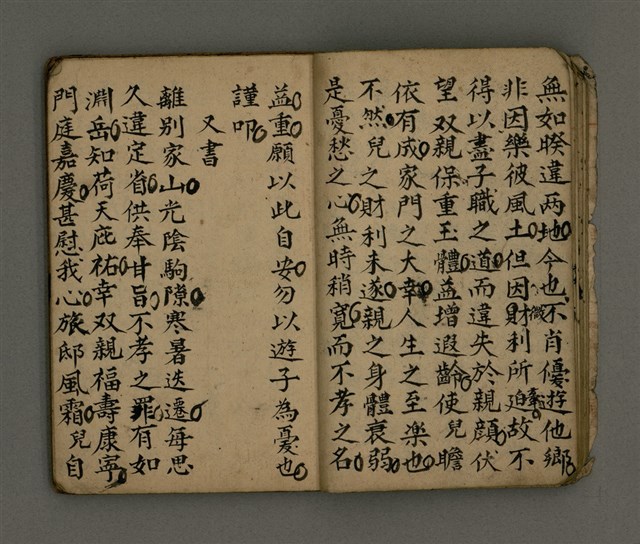 無如暌違两地○今也不肖優遊他鄉○
非因樂彼風土○但因財利所迫○故不
得以盡子職之道○而違失於親顔○伏
望双親保重玉體○益增遐齡○使兒瞻
依有成○家門之大幸○人生之至樂也○
不然○兒之財利未遂○親之身體衰弱○
是憂愁之心○無時稍寬○而不孝之名
益重○願以此自安○勿以遊子為憂也○
謹叩○
又書
離别家山○光陰駒隙○寒暑迭遷○每思
久違定省○供奉甘旨○不孝之罪○有如
淵岳○知荷天庇祐○幸双親福壽康寧○
門庭嘉慶○甚慰我心○旅邸風霜○兒自